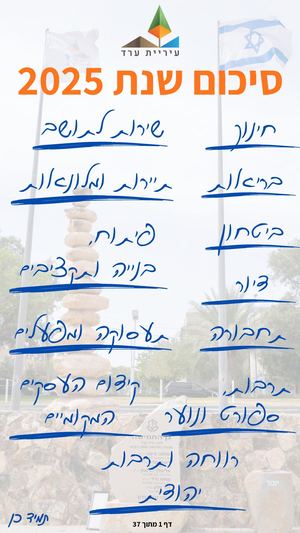 עיריית ערד
סיכום שנת 2025
חינוך
שירות לתושב
בריאות
תיירות ומלונאות
ביטחון
פיתוח,
בנייה ותקציבים
דיור
תחבורה
תעסוקה ומפעלים
תרבות,
ספורט ונוער
קידום העסקים
המקומיים
רווחה ותרבות
יהודית
דף 1 מתוך 37
תמיד כן